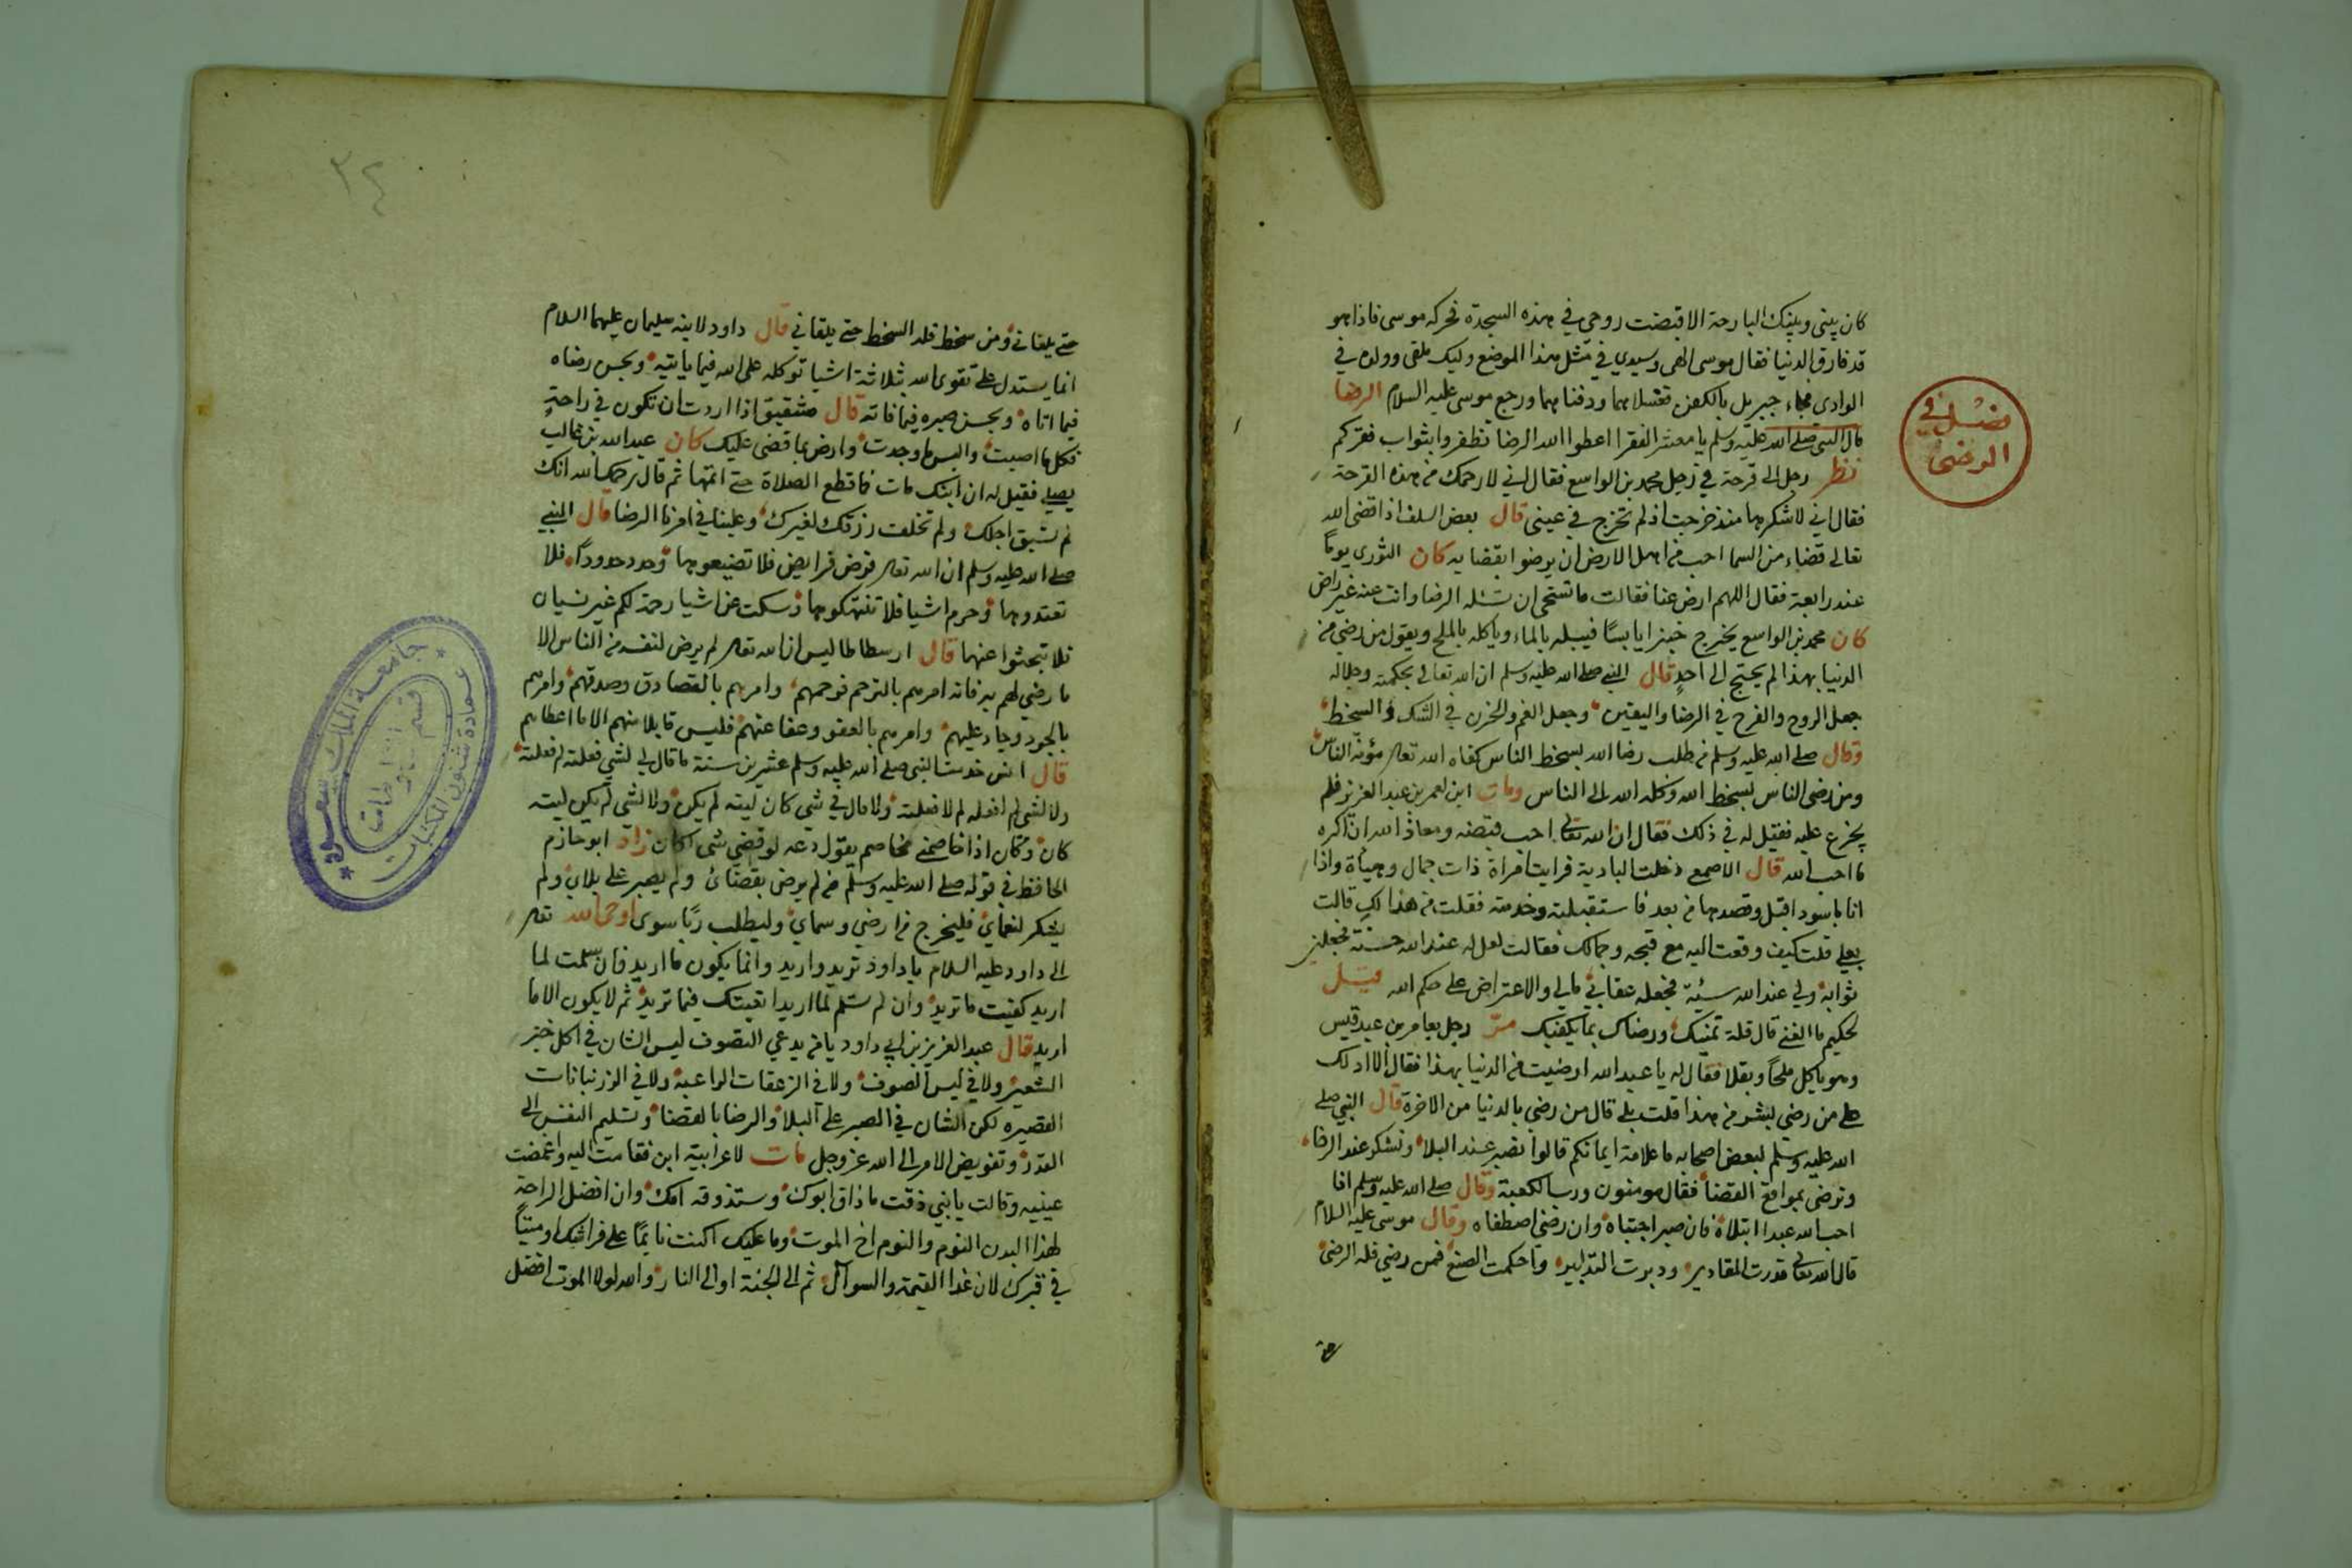 كان بيني وبينك البارحة الا قبضت روحي في هذه السجدة فحركه موسى فاذا هو
قد فارق الدنيا فقال موسى الهي وسيدي في مثل هذا الموضع وليك ملقى وولده في
الوادى فجاء جبريل بالكفن فغسلاهما ودفناهما ورجع موسى عليه السلام الرضا
قال النبي صلى الله عليه وسلم يا معشر الفقرا اعطوا الله الرضا تظفروا بثواب فقركم
فصل في
الرضى
نظر رجل الى قرحة في رجل محمد بن الواسع فقال اني لارحمك من هذه القرحة
فقال اني لاشكرها منذ خرجت اذ لم تخرج في عيني قال بعض السلف اذا قضى الله
تعالى قضاء من السما احب من اهل الارض ان يرضوا بقضايه كان الثوري يوماً
عند رابعة فقال اللهم ارض عنا فقالت ما تستحي ان تسئله الرضا وانت عنه غير راض
كان محمد بن الواسع يخرج خبزا يابسًا فيبله بالماء وياكله بالملح ويقول من رضي من
الدنيا بهذا لم يحتج الى احدٍ قال النبي صلى الله عليه وسلم ان الله تعالى بحكمته وجلاله
جعل الروح والفرح في الرضا واليقين وجعل الغم والحزن في الشك والسخط
وقال صلى الله عليه وسلم من طلب رضا الله بسخط الناس كفاه الله تعه مؤنة الناس
ومن رضى الناس بسخط الله وكله الله الى الناس ومات ابن لعمر بن عبد العزيز فلم
يجزع عليه فقيل له في ذلك فقال ان الله تعالى احب قبضه ومعاذ الله ان اكره
ما احب الله قال الاصمعي دخلت البادية فرايت امراة ذات جمال وحياة واذا
انا باسود اقبل وقصدها من بعد فاستقبلته وخدمته فقلت من هذا لكِ قالت
بعلي قلت كيف وقعت اليه مع قبحه وجمالك فقالت لعل له عند الله حسنة فجعلني
ثوابه ولي عند الله سيئة فجعله عقابي مالي والاعتراض على حكم الله قيل
لحكيم ما الغنى قال قلة تمنيك ورضاك بما يكفيك مرّ رجل بعامر بن عبد قيس
وهو ياكل ملحاً وبقلا فقال له يا عبد الله ارضيت من الدنيا بهذا فقال الا ادلك
على من رضى بشر من هذا قلت بلى قال من رضي بالدنيا من الاخرة قال النبي صلى
الله عليه وسلم لبعض اصحابه ما علامة ايمانكم قالوا نصبر عند البلاء ونشكر عند الرخاء
ونرضى بمواقع القضا فقال مومنون ورب الكعبة وقال صلى الله عليه وسلم اذا
احب الله عبدا ابتلاه فان صبر اجتباه وان رضي اصطفاه وقال موسى عليه السلام
قال الله تعالى قدرت المقادير ودبرت التدابير واحكمت الصنع فمن رضي فله الرضى
حتى
٣٤
حتى يلقاني ومن سخط فله السخط حتى يلقاني قال داود لابنه سليمان عليهما السلام
انما يستدل على تقوى الله بثلاثة اشيا توكله على الله فيما ياتيه وبحسن رضاه
فيما اتاه وبحسن صبره فيما فاته قال شقيق اذا اردت ان تكون في راحةٍ
فكل ما اصبت والبس ما وجدت وارض بما قضى عليك كان عبد الله بن غالب
يصلي فقيل له ان ابنك مات فما قطع الصلاة حتى اتمها ثم قال رحمك الله انك
لم تسبق اجلك ولم تخلف رزقك لغيرك وعلينا في امرنا الرضا قال النبي
صلى الله عليه وسلم ان الله تعه فرض فرايض فلا تضيعوها وحد حدوداً فلا
تعتدوها وحرم اشيا فلا تنتهكوها وسكت عن اشيا رحمة لكم غير نسيان
فلا تبحثوا عنها قال ارسطاطاليس ان الله تعه لم يرض لنفسه من الناس الا
ما رضي لهم به فانه امرهم بالترحم فرحمهم وامرهم بالتصادق وصدقهم وامرهم
بالجود وجاد عليهم وامرهم بالعفو وعفا عنهم فليس قابلا منهم الا ما اعطاهم
قال انس خدمت النبي صلى الله عليه وسلم عشرين سنة ما قال لي لشي فعلته لم فعلته
ولا لشي لم افعله لم لا فعلته ولا قال في شي كان ليته لم يكن ولا لشي لم يكن ليته
كان وكان اذا خاصمني مخاصم يقول دعه لو قضي شى لكان زاد ابو حازم
الحافظ في قوله صلى الله عليه وسلم من لم يرض بقضائ ولم يصبر على بلاي ولم
يشكر لنعماي فليخرج من ارضي وسماي وليطلب ربًا سوى اوحى الله تعه
الى داود عليه السلام يا داود تريد واريد وانما يكون ما اريد فان سلمت لما
اريد كفيت ما تريد وان لم تسلم لما اريد اتعبتك فيما تريد ثم لا يكون الا ما
اريد قال عبد العزيز بن ابي داود يا من يدعي التصوف ليس الشان في اكل خبز
الشعير ولا في لبس الصوف ولا في الزعقات الواعبة ولا في الزرنبانات
القصيره لكن الشان في الصبر على البلا والرضا بالقضا وتسليم النفس الى
القدر وتفويض الامر الى الله عز وجل مات لاعرابية ابن فقامت اليه واغمضت
عينيه وقالت يا بني ذقت ما ذاق ابوك وستذوقه امك وان افضل الراحة
لهذا البدن النوم والنوم اخ الموت وما عليك اكنت نايمًا على فراشك او ميتًا
في قبرك لان غدا القيمة والسوال ثم الى الجنة او الى النار والله لولا الموت افضل
جامعة الملك سعود
عمادة شئون المكتبات
قسم المخطوطات